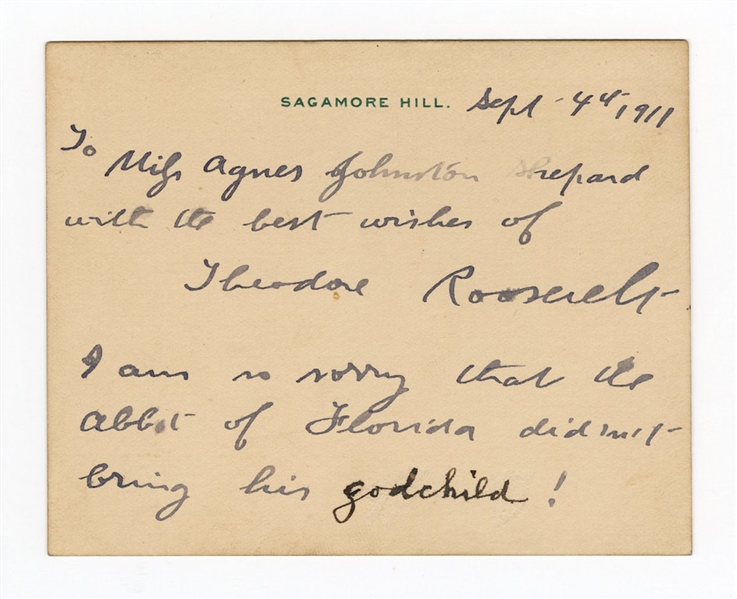 SAGAMORE HILL. Sept 4th 1911
To Miss Agnes Johnston Shepard
with the best wishes of
Theodore Roosevelt
I am so sorry that the
abbot of Florida did not
bring his godchild!